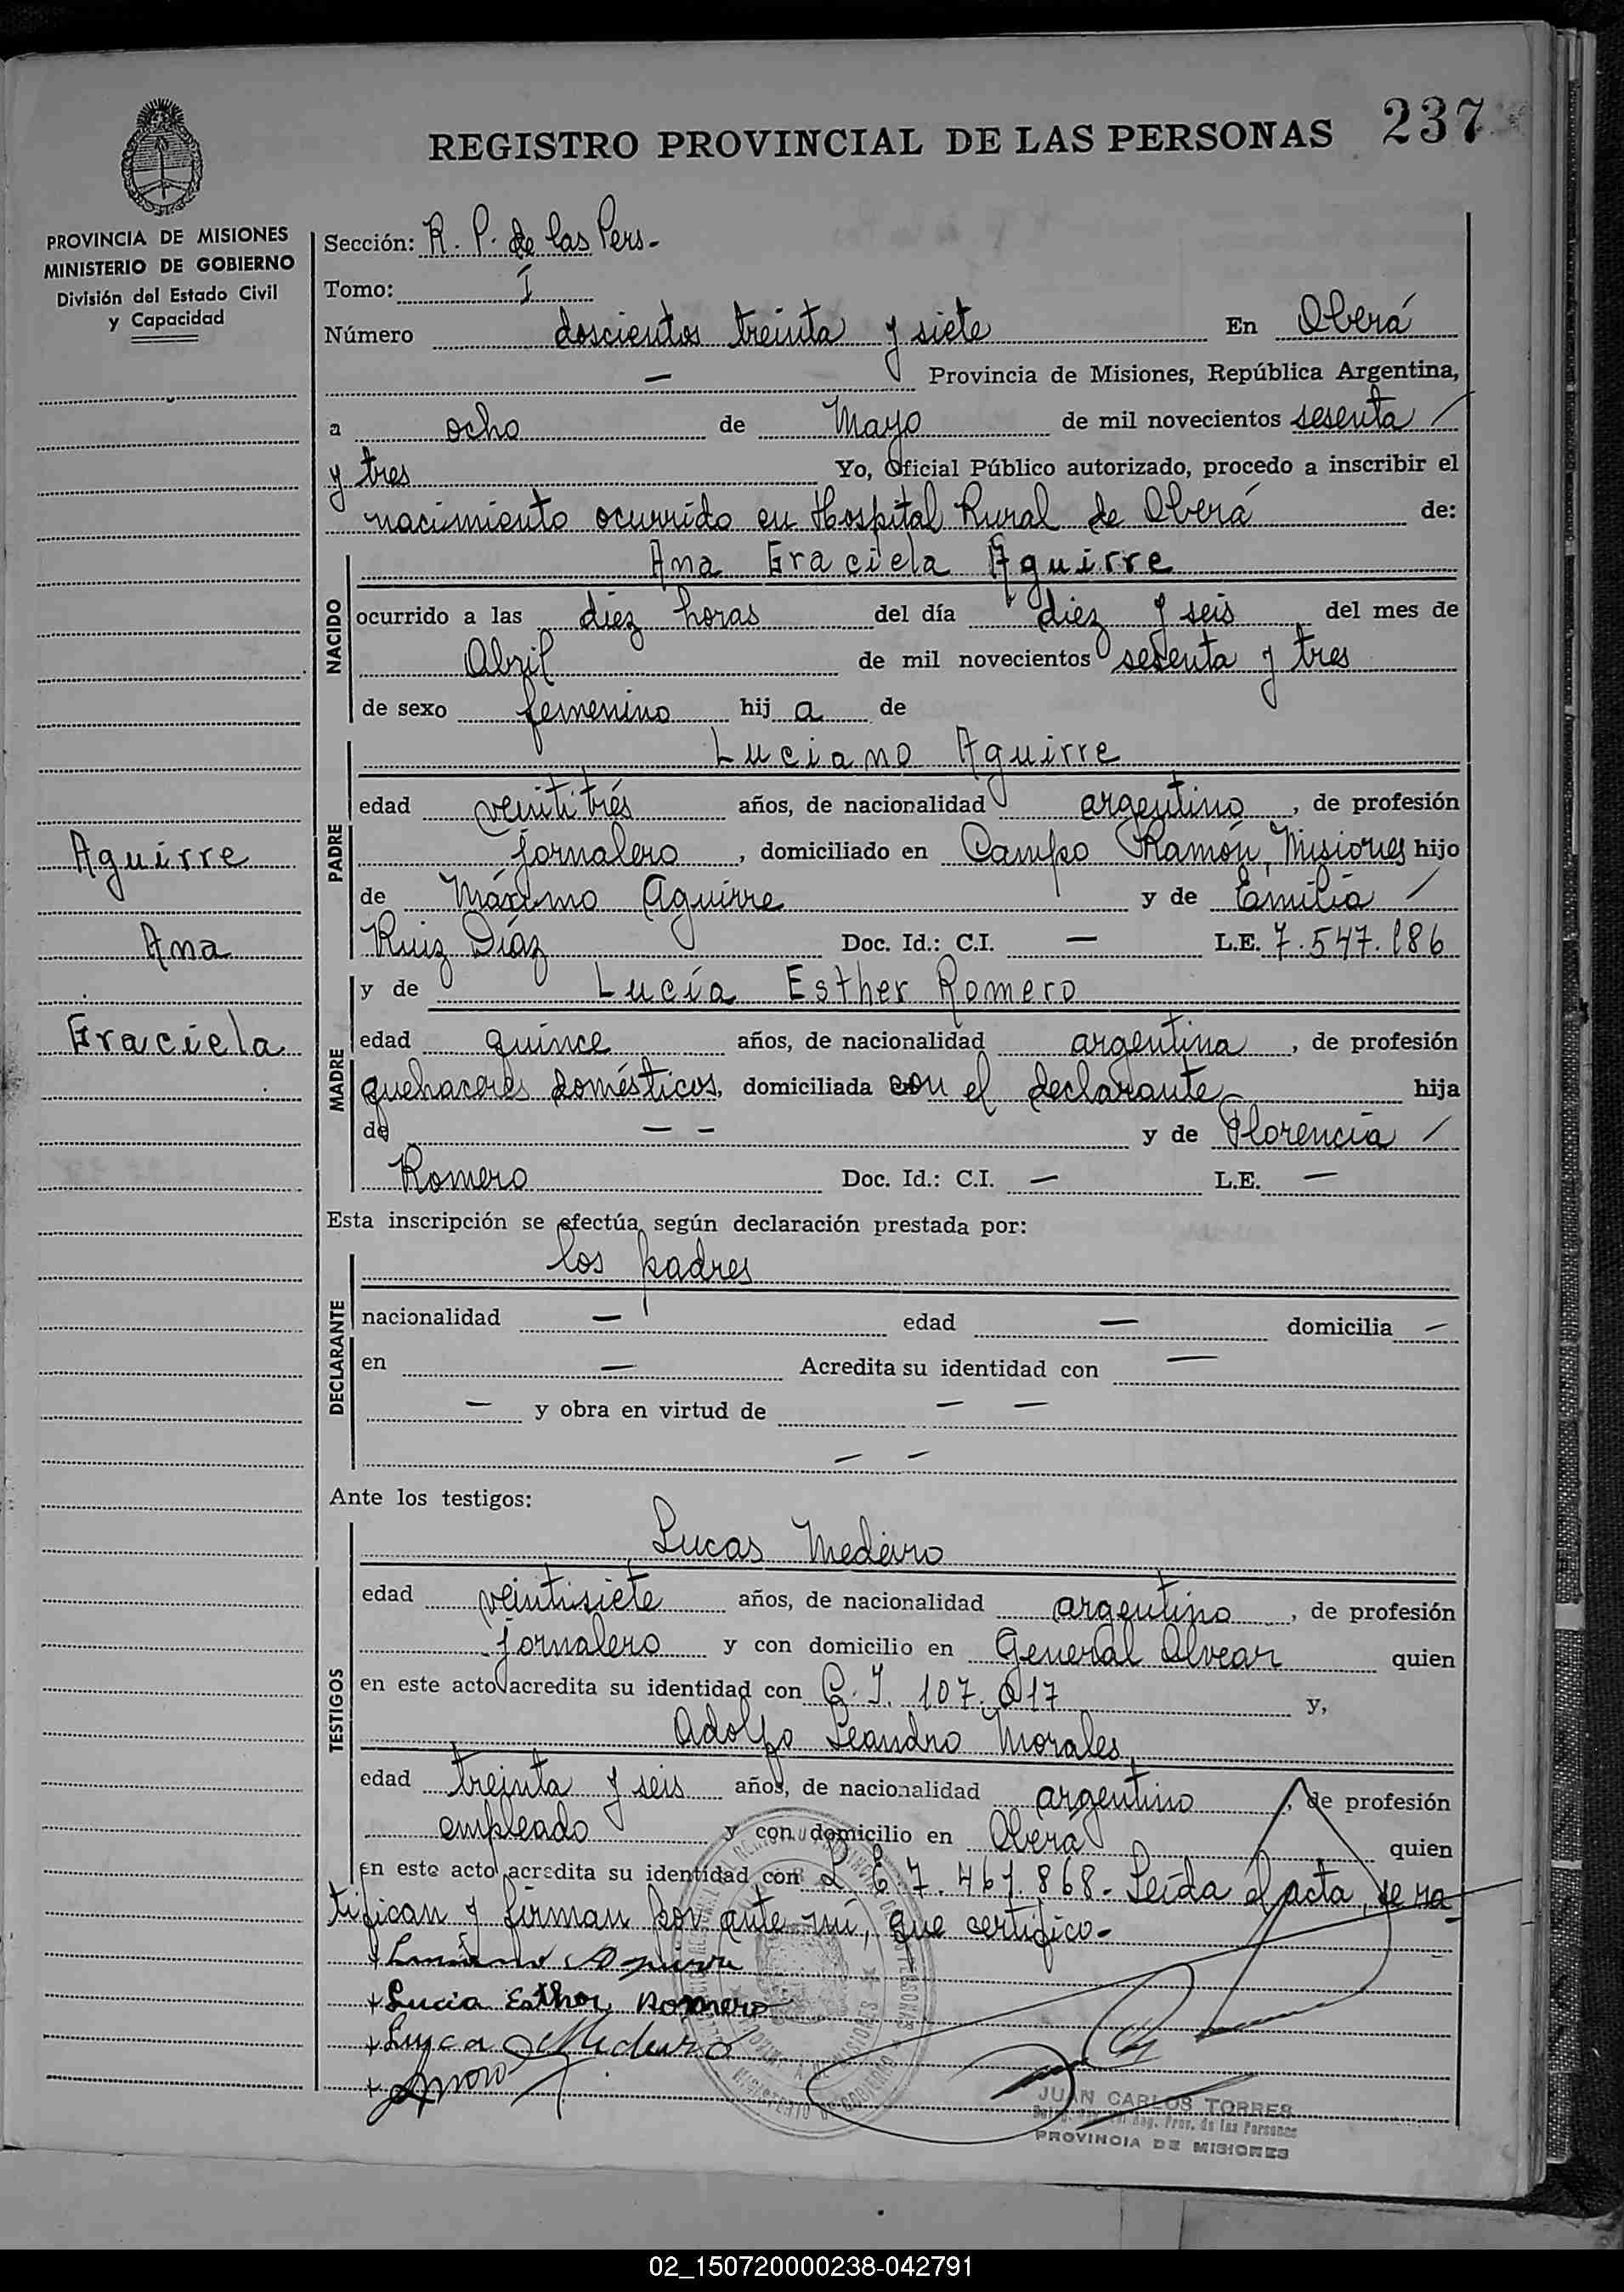 REGISTRO PROVINCIAL DE LAS PERSONAS 237
PROVINCIA DE MISIONES
MINISTERIO DE GOBIERNO
División del Estado Civil
y Capacidad
Aguirre
Ana
Graciela
Sección: R. P. de las Pers-
Tomo: I
Número doscientos treinta y siete En Oberá
— Provincia de Misiones, República Argentina,
a ocho de Mayo de mil novecientos sesenta /
y tres Yo, Oficial Público autorizado, procedo a inscribir el
nacimiento ocurrido en Hospital Rural de Oberá de:
NACIDO
Ana Graciela Aguirre
ocurrido a las diez horas del día diez y seis del mes de
Abril de mil novecientos sesenta y tres
de sexo femenino hij a de
PADRE
Luciano Aguirre
edad veintitrés años, de nacionalidad argentino, de profesión
jornalero, domiciliado en Campo Ramón, Misiones hijo
de Máximo Aguirre y de Emilia /
Ruiz Díaz Doc. Id.: C.I. — L.E. 7.547.186
MADRE
y de Lucía Esther Romero
edad quince años, de nacionalidad argentina, de profesión
quehaceres domésticos, domiciliada con el declarante hija
de — — y de Florencia /
Romero Doc. Id.: C.I. — L.E. —
Esta inscripción se efectúa según declaración prestada por:
DECLARANTE
los padres
nacionalidad — edad — domicilia —
en — Acredita su identidad con —
— y obra en virtud de — —
— —
Ante los testigos:
TESTIGOS
Lucas Medeiro
edad veintisiete años, de nacionalidad argentino, de profesión
jornalero y con domicilio en General Alvear quien
en este acto acredita su identidad con C. I. 107.017 y,
Adolfo Leandro Morales,
edad treinta y seis años, de nacionalidad argentino, de profesión
empleado y con domicilio en Oberá quien
en este acto acredita su identidad con L E 7.461.868- Leída el acta, se ra
tifican y firman por ante mí, que certifico-
+ Luciano Aguirre
+ Lucia Esther Romero
+ Luca Mideiro
JUAN CARLOS TORRES
Reg. Prov. de las Personas
PROVINCIA DE MISIONES
02_150720000238-042791